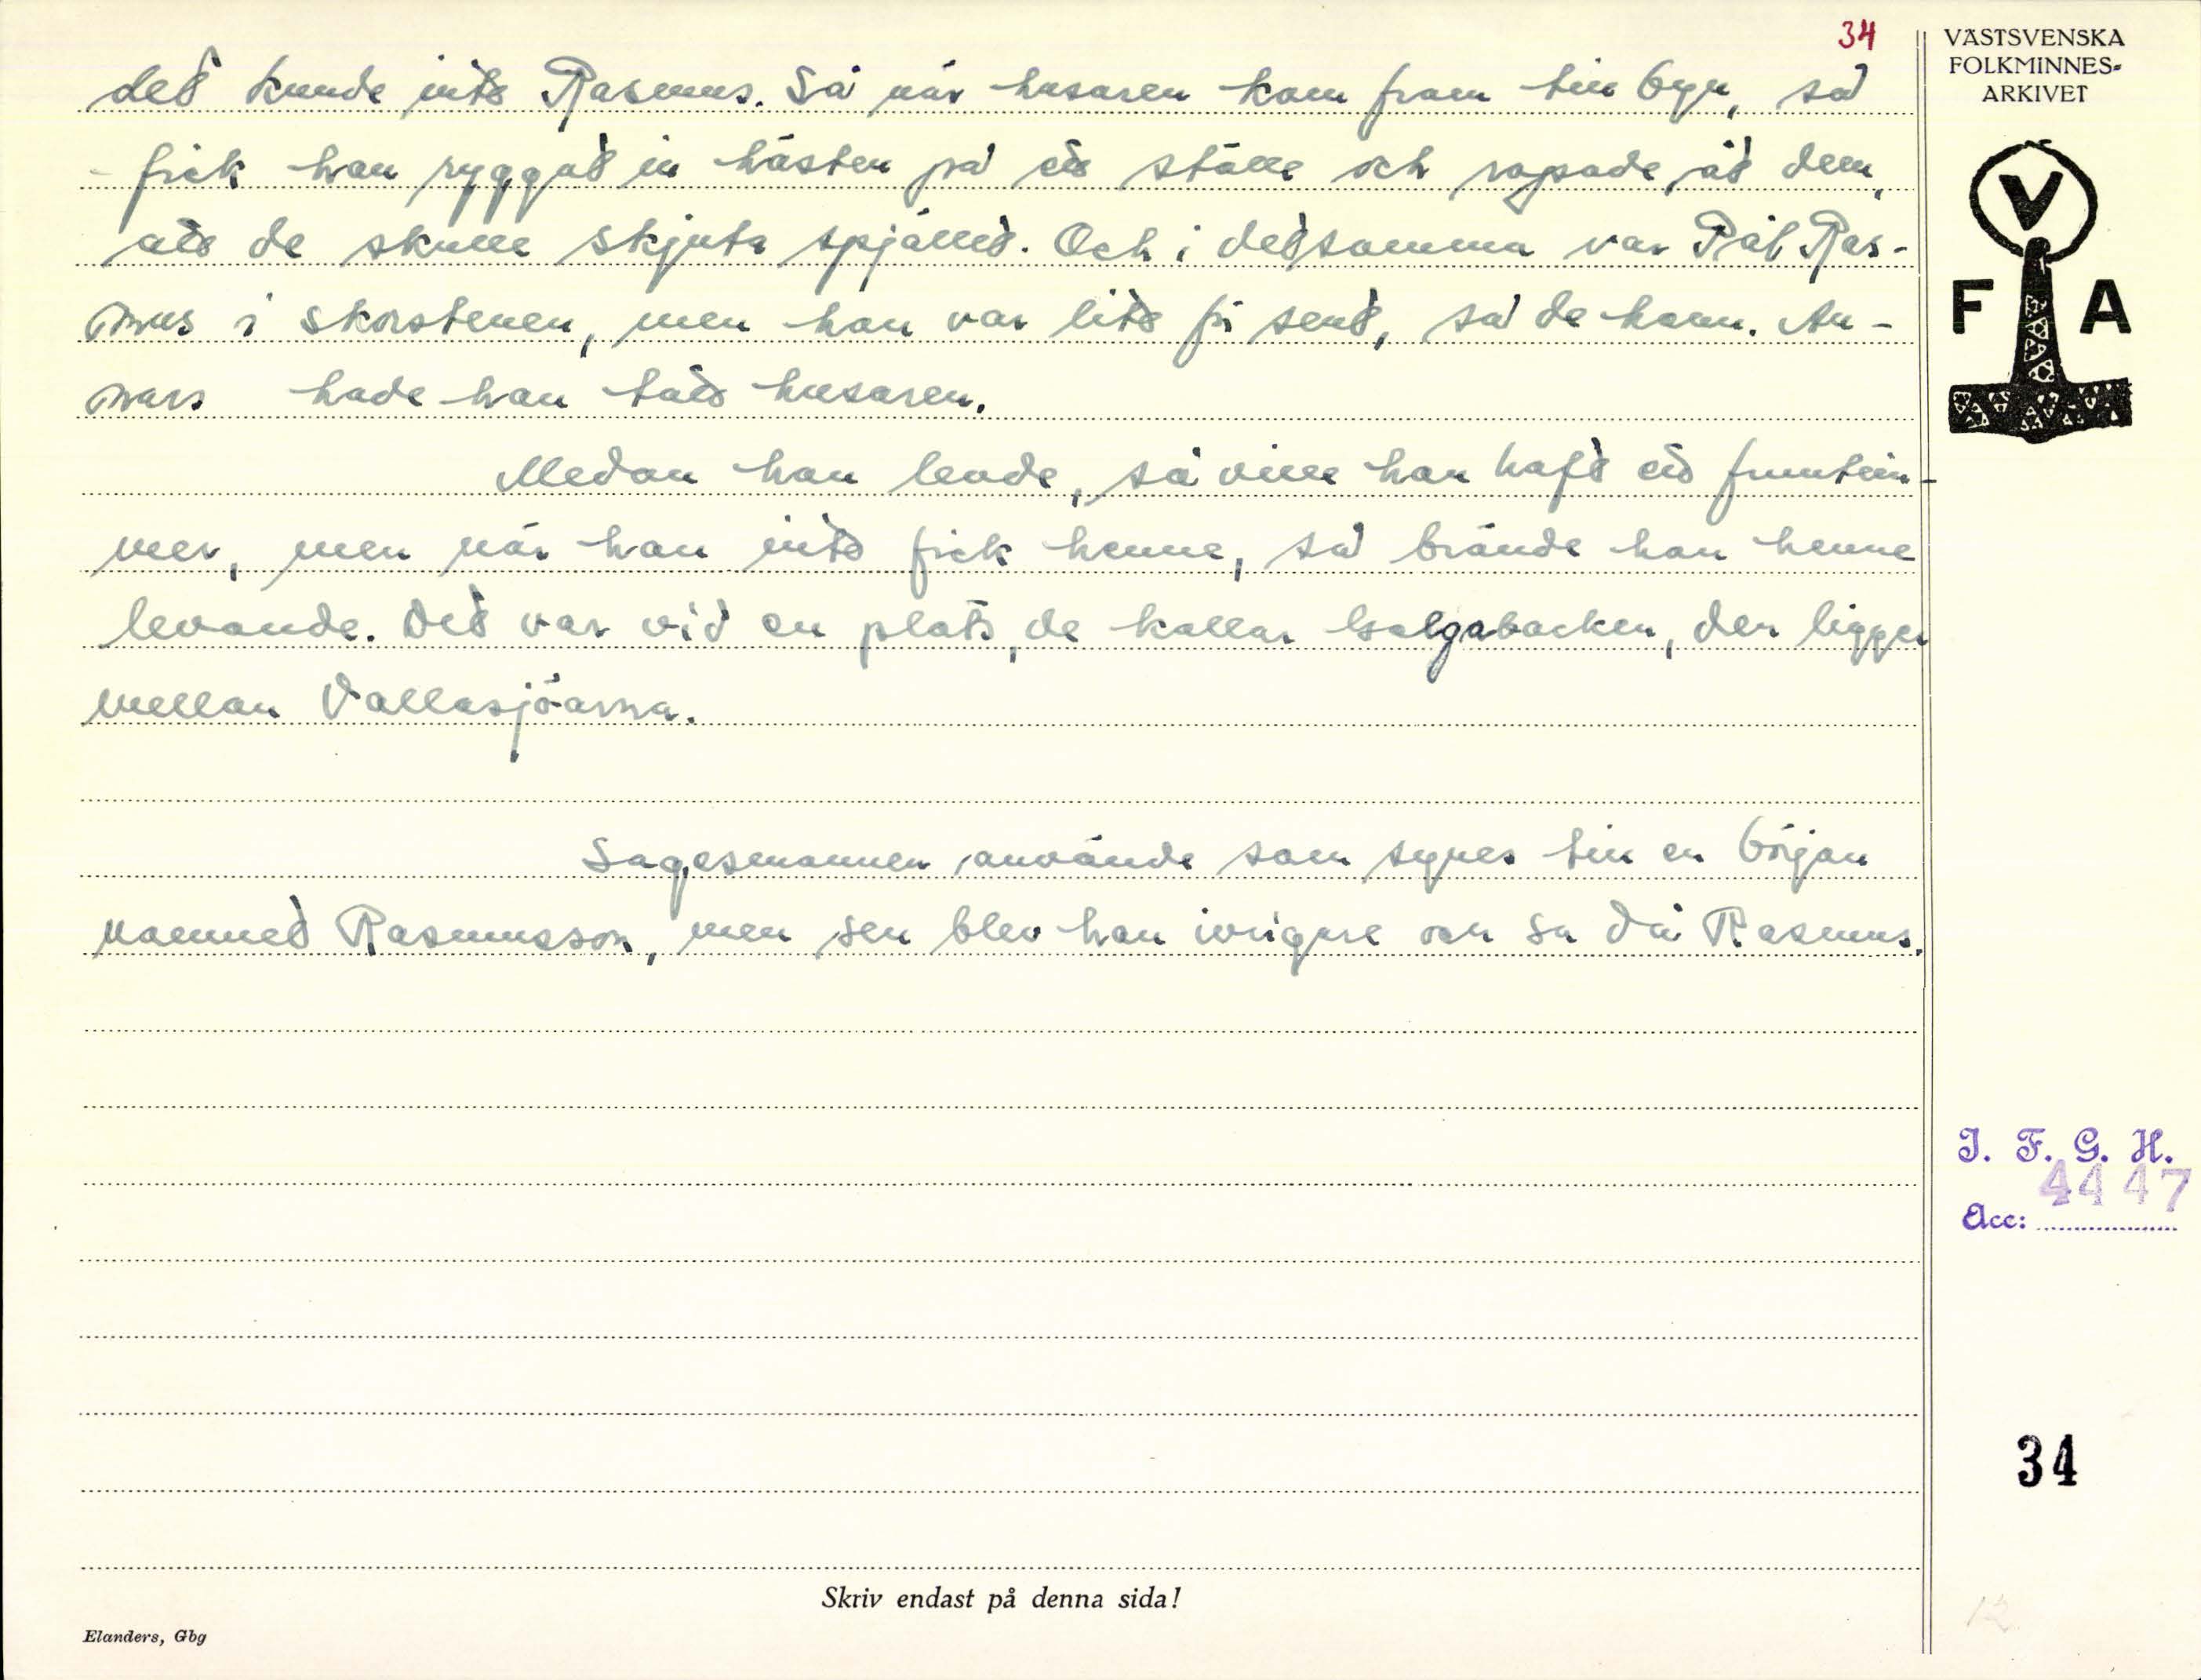 34
det kunde inte Rasmus. Så når husaren kom fram till byn, så
fick han ryggat in hästen på ett ställe och ropade åt dem,
att de skulle skjuta spjället. Och i detsamma var Pål Ras-
mus i skorstenen, men han var lite för sent, så de hann. An-
nars hade han tatt husaren.
Medan han levde, så ville han haft ett fruntim-
mer, men när han inte fick henne, så brände han henne
levande. Det var vid en plats, de kallar Galgabacken, den ligger
mellan Vallasjöarna.
Sagesmannen använde som synes till en början
namnet Rasmusson, men sen blev han ivrigare och sa då Rasmus.
VÄSTSVENSKA
FOLKMINNES-
ARKIVET
V
F A
I. F. G. H.
4447
Acc:
34
12
Skriv endast på denna sida!
Elanders, Gbg